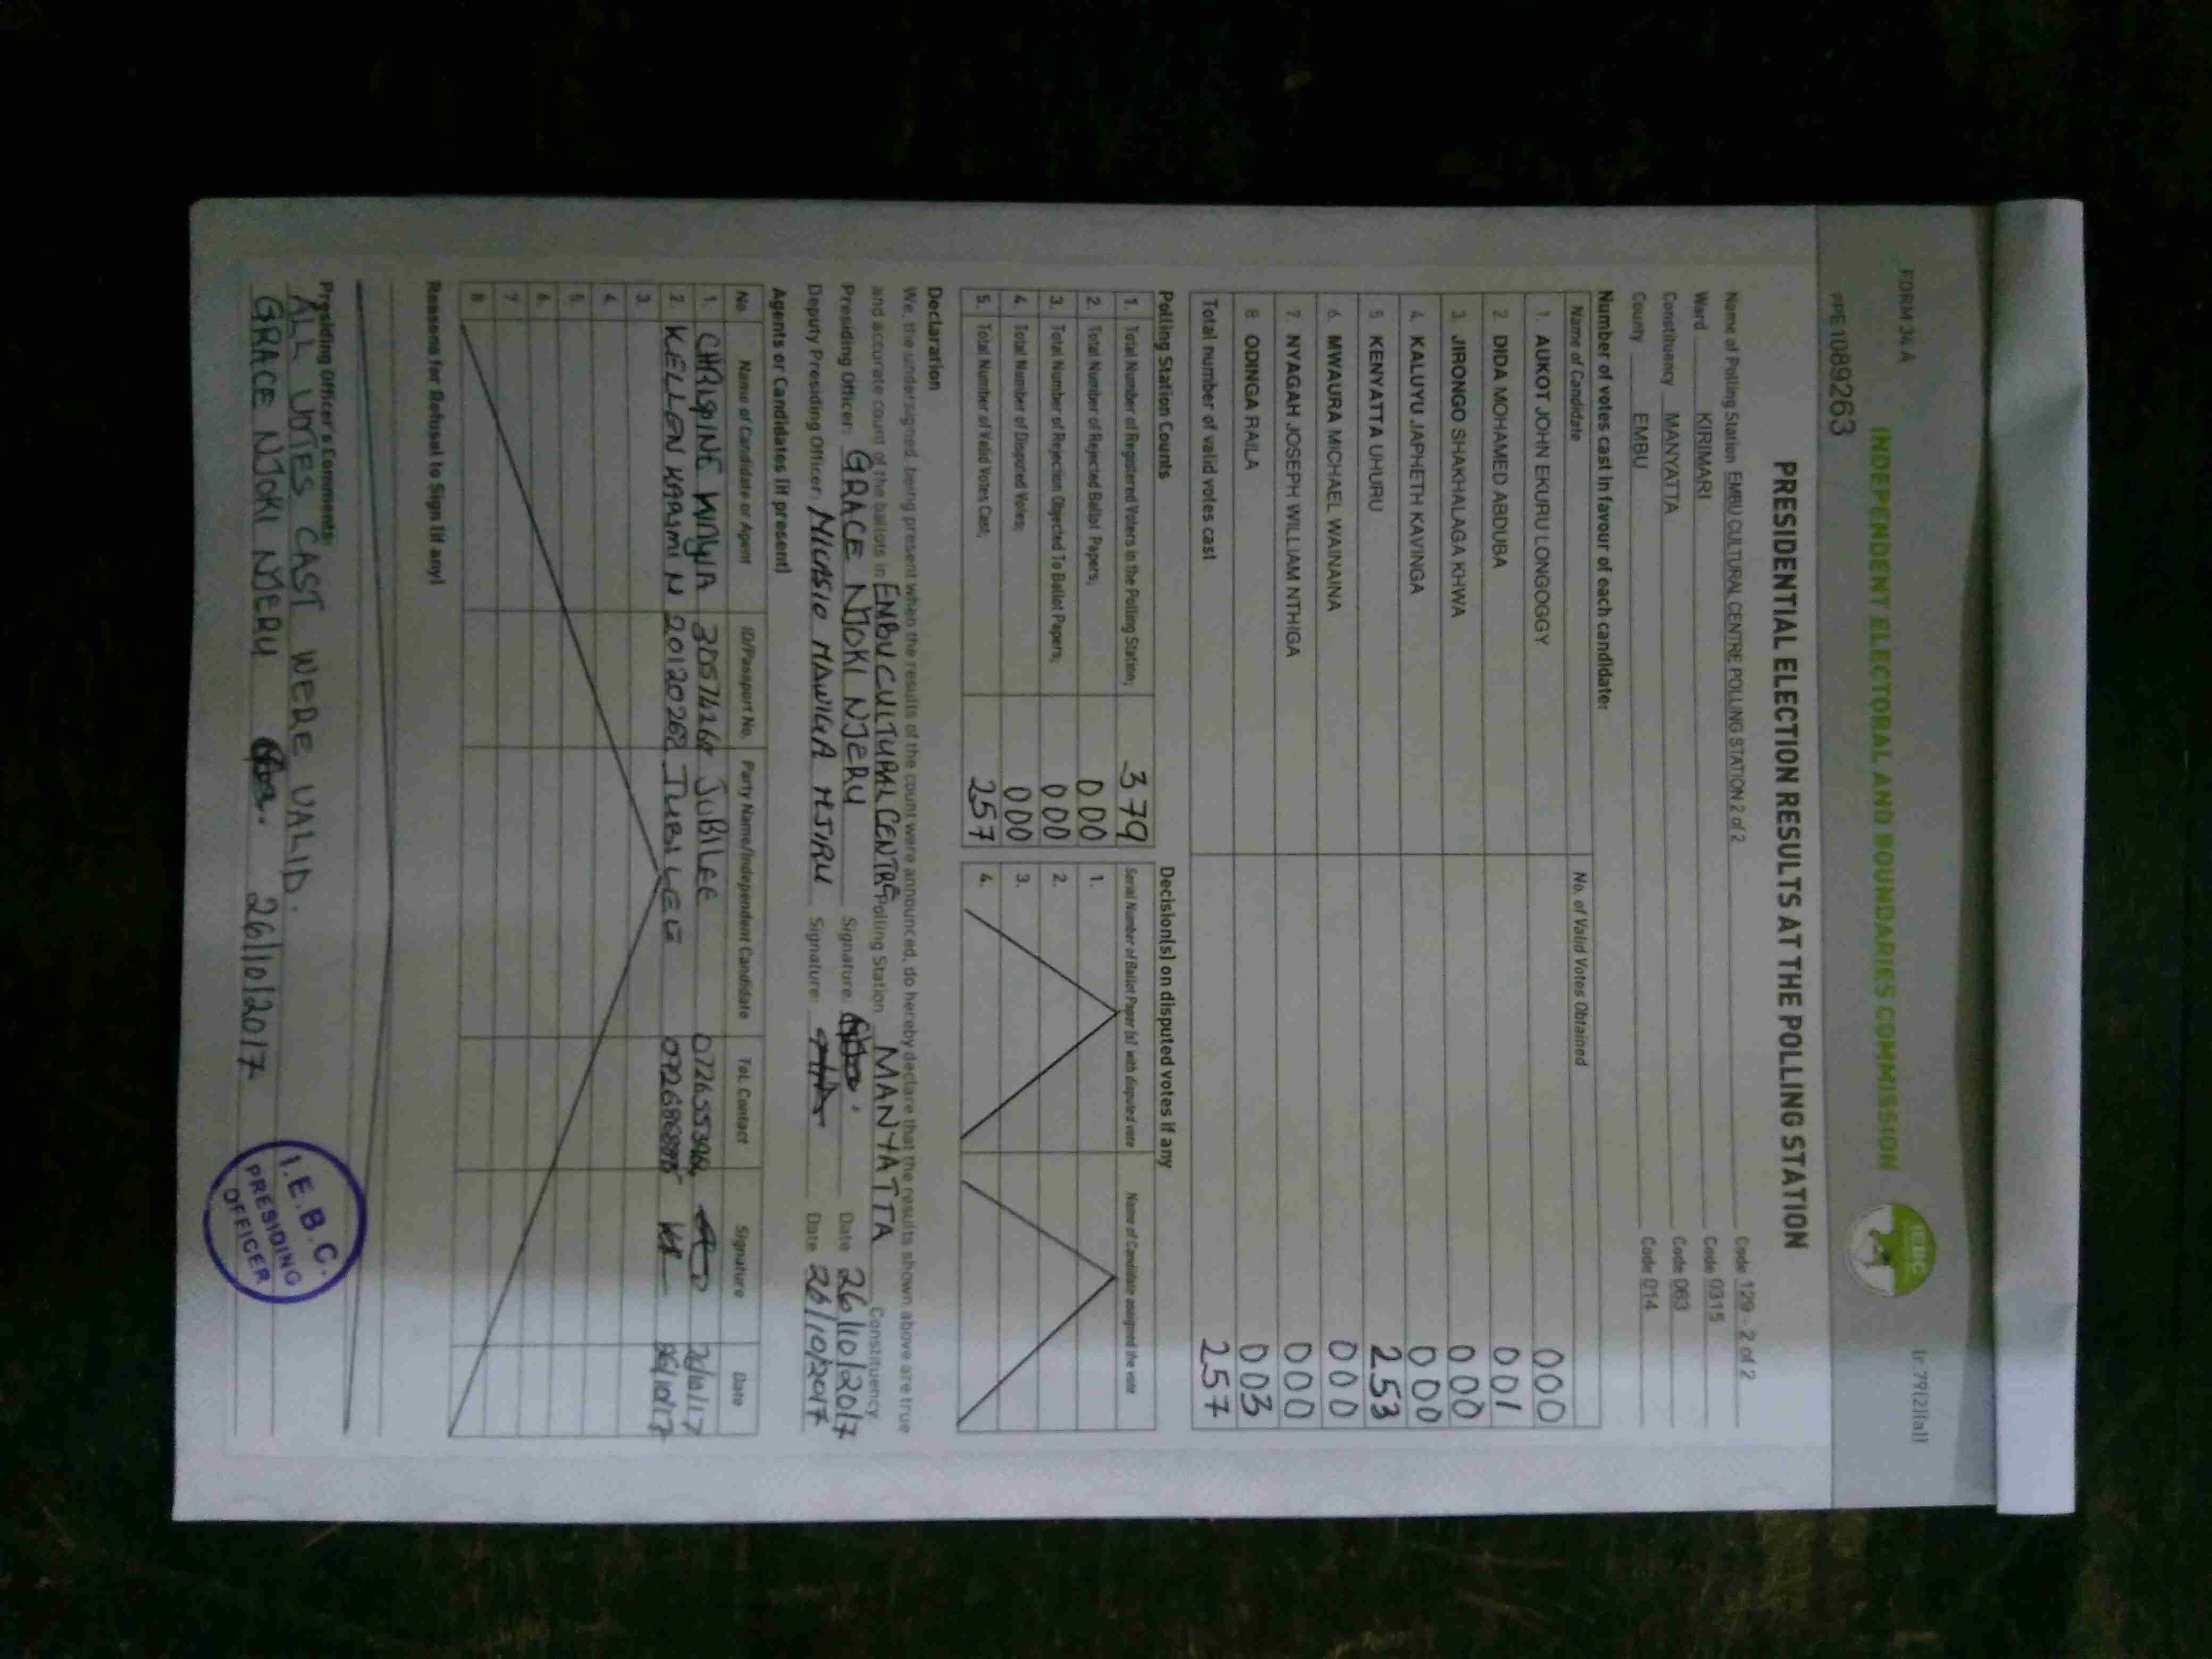 FORM 34 A
(r.79(2)(a))
INDEPENDENT ELECTORAL AND BOUNDARIES COMMISSION
IEBC
PPE1089263
PRESIDENTIAL ELECTION RESULTS AT THE POLLING STATION
Name of Polling Station EMBU CULTURAL CENTRE POLLING STATION 2 of 2 Code 129 - 2 of 2
Ward KIRIMARI Code 0315
Constituency MANYATTA Code 063
County EMBU Code 014
Number of votes cast in favour of each candidate:
Name of Candidate No. of Valid Votes Obtained
1. AUKOT JOHN EKURU LONGOGGY 000
2. DIDA MOHAMED ABDUBA 001
3. JIRONGO SHAKHALAGA KHWA 000
4. KALUYU JAPHETH KAVINGA 000
5 KENYATTA UHURU 253
6. MWAURA MICHAEL WAINAINA 000
7. NYAGAH JOSEPH WILLIAM NTHIGA 000
8. ODINGA RAILA 003
Total number of valid votes cast 257
Polling Station Counts
1. Total Number of Registered Voters in the Polling Station; 379
2. Total Number of Rejected Ballot Papers; 000
3. Total Number of Rejection Objected To Ballot Papers; 000
4. Total Number of Disputed Votes; 000
5. Total Number of Valid Votes Cast; 257
Decision(s) on disputed votes if any
Serial Number of Ballot Paper (s) with disputed vote Name of Candidate assigned the vote
1.
2.
3.
4.
Declaration
We, the undersigned, being present when the results of the count were announced, do hereby declare that the results shown above are true
and accurate count of the ballots in EMBU CULTURAL CENTRE Polling Station MANYATTA Constituency
Presiding Officer: GRACE NJOKI NJERU Signature: Date 26/10/2017
Deputy Presiding Officer: Signature: Date 26/10/2017
Agents or Candidates (if present)
No Name of Candidate or Agent ID/Passport No. Party Name/Independent Candidate Tel. Contact Signature Date
1. JUBILEE 26/10/17
2 KELLEN 20120262 JUBILEE 26/10/17
3.
4.
5.
6.
7
8.
Reasons for Refusal to Sign (if any)
Presiding Officer's Comments:
ALL VOTES CAST WERE VALID.
GRACE NJOKI NJERU 26/10/2017
I.E.B.C.
PRESIDING
OFFICER